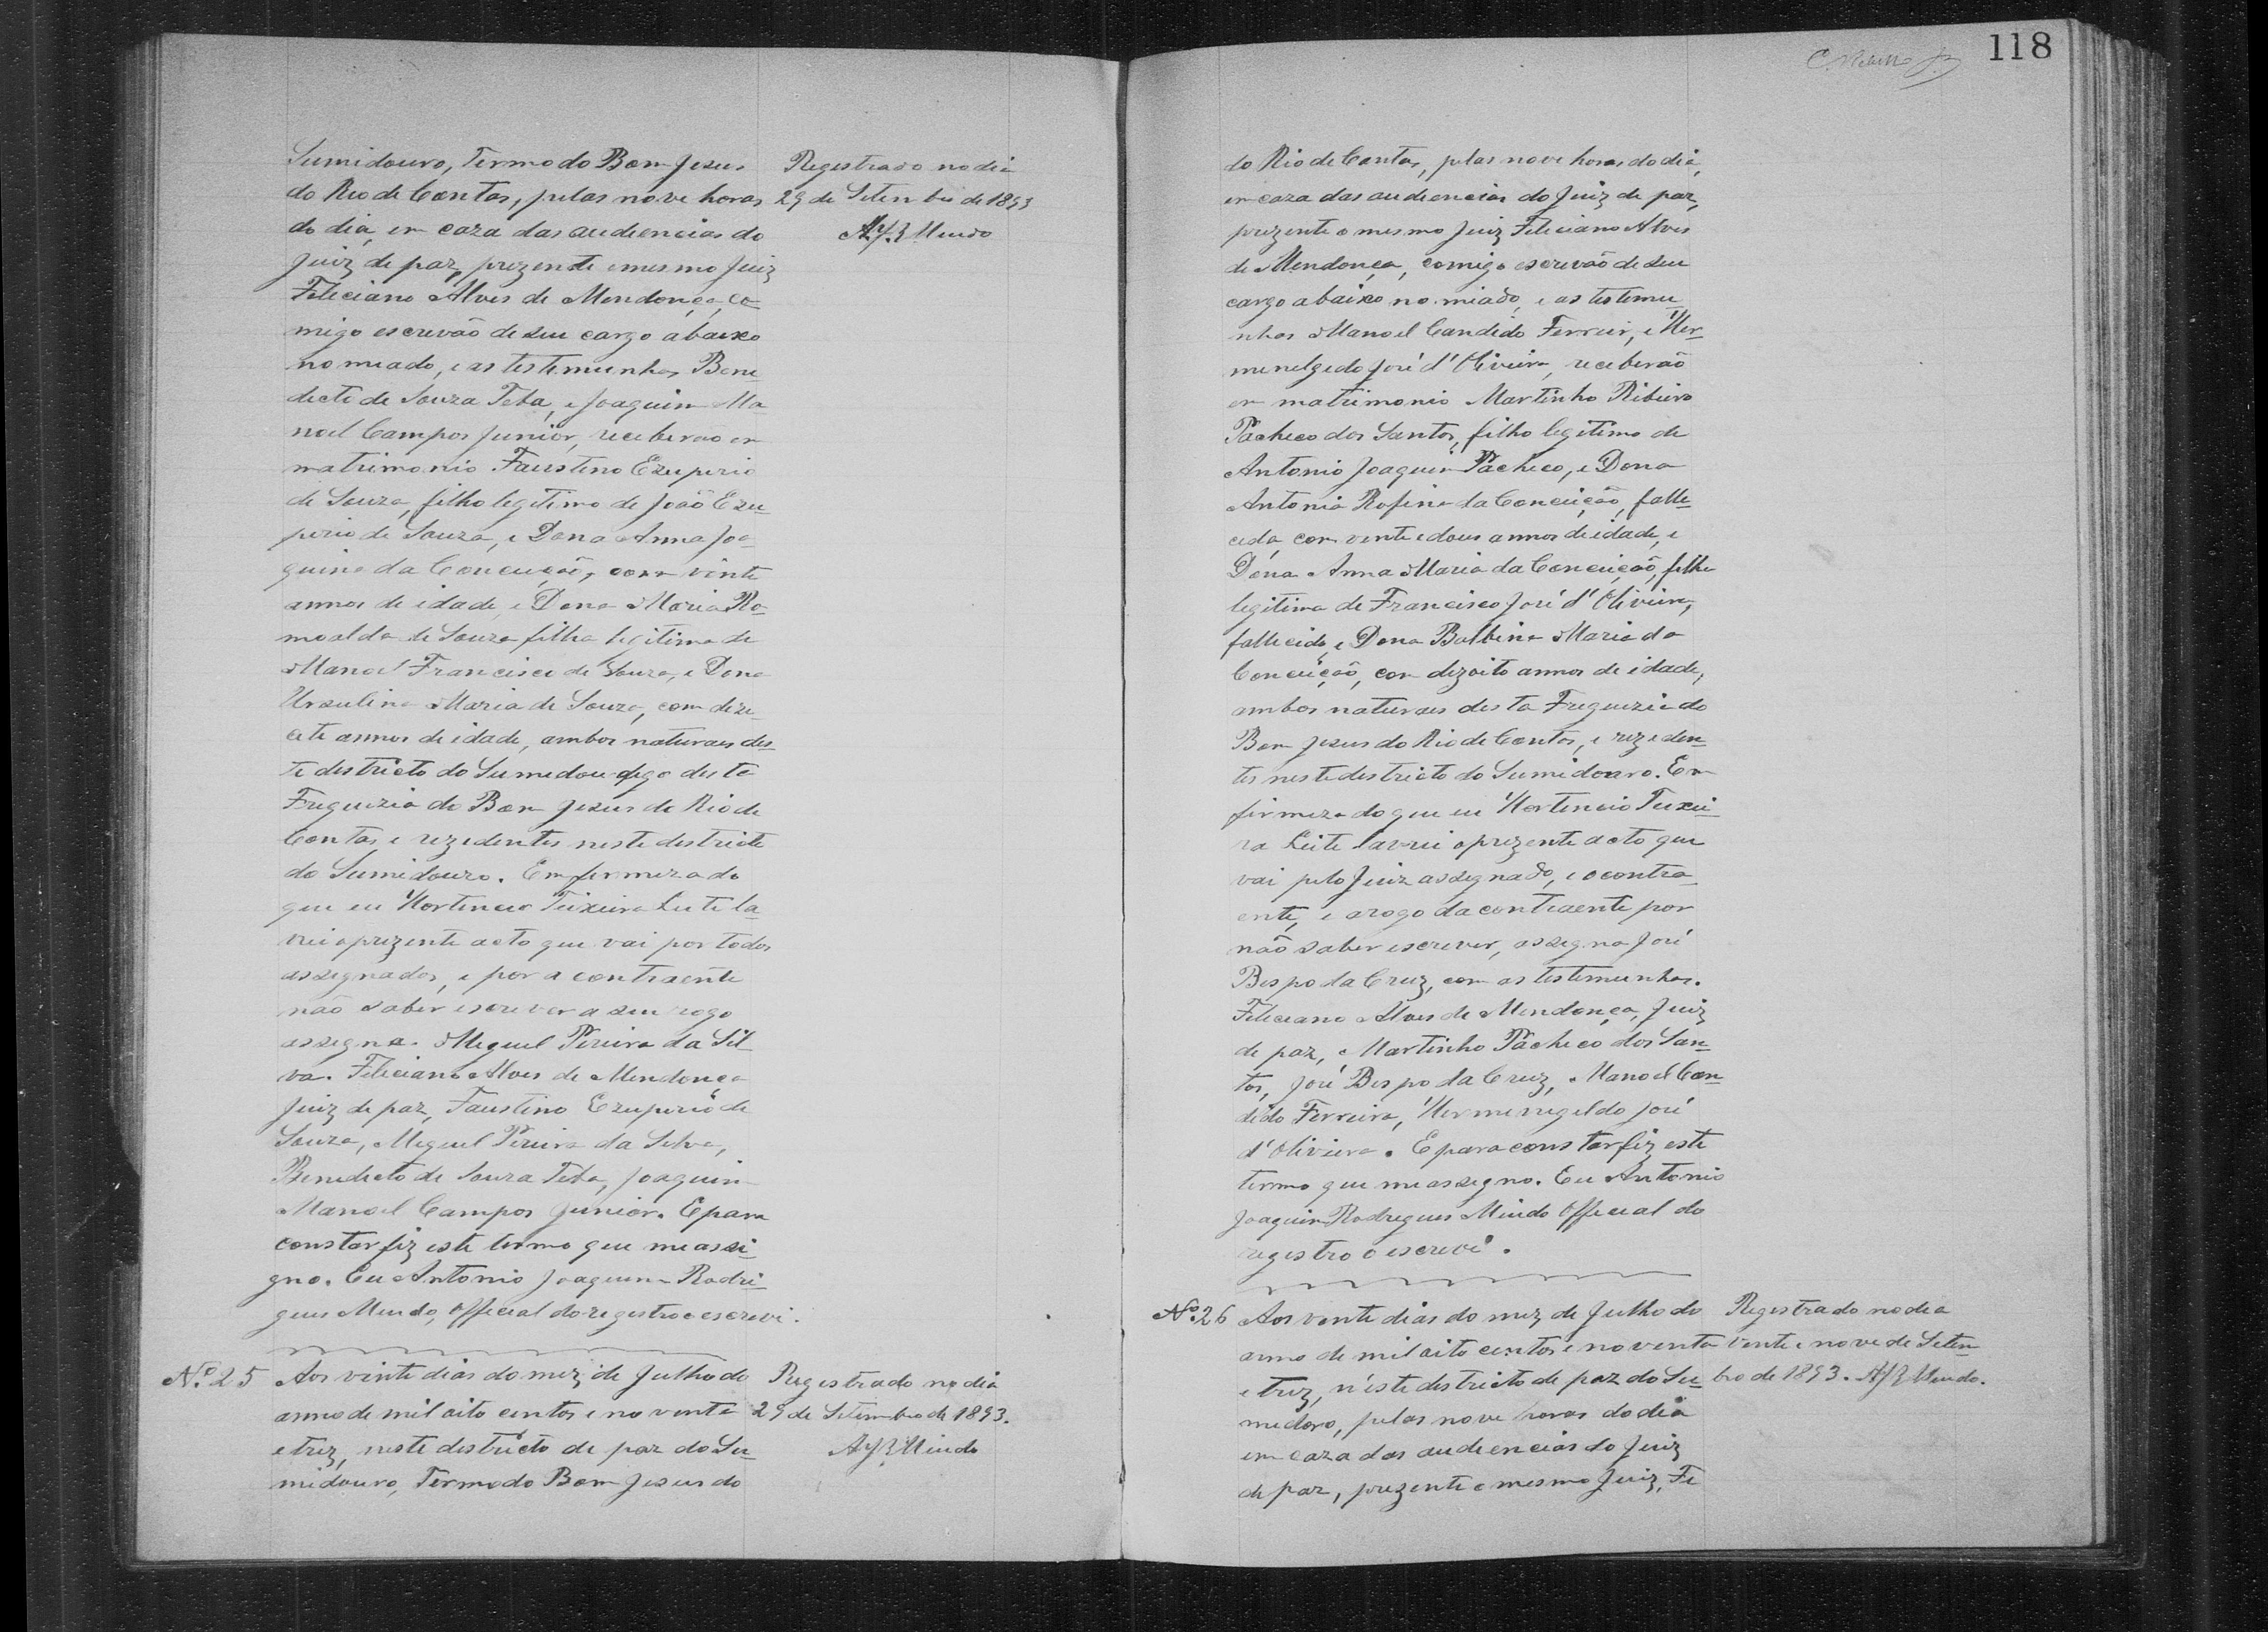 Sumidouro, Termo do Bom Jesus
do Rio de Contas, pelas nove horas
do dia, em caza das audiencias do
Juiz de paz, prezente o mesmo Juiz
Feliciano Alves de Mendonça, co-
migo escrevão de seu cargo abaixo
nomeado, e as testemunhas Bene-
dicto de Souza Teba, e Joaquim Ma-
noel Campos Junior, receberão em
matrimonio Faustino Exuperio
de Souza, filho legitimo de João Exu-
perio de Souza, e Dona Anna Joa-
quina da Conceição, com vinte
annos de idade, e Dona Maria Ro-
moalda de Souza filha legitima de
Manoel Francisco de Souza, e Dona
Ursulina Maria de Souza, com deze-
cete annos de idade, ambos naturaes des-
te districto do digo desta
Freguezia do Bom Jesus do Rio de
Contas, e rezedentes neste destricto
do Sumidouro. Em firmeza do
que eu Hortencio Teixeira Leite la-
vrei o prezente acto que vai por todos
assegnados, e por a contraente
não saber escrever a seu rogo
assegna Meguel Pereira da Sil-
va. Feliciano Alves de Mendonça
Juiz de paz, Faustino Exuperio de
Souza, Meguel Pereira da Selva,
Benedicto de Souza Teba, Joaquim
Manoel Campos Junior. E para
constar fiz este termo que me assi-
gno. Eu Antonio Joaquim Rodri-
gues Mendo, Official do registro o escrevi.
Registrado no dia
29 de Setembro de 1893
AJR Mendo
Nº 25 Aos vinte dias do mez de Julho do
anno de mil oito centos e noventa
e trez, neste destricto de paz do Su-
midouro, Termo do Bom Jesus do
Registrado no dia
29 de Setembro de 1893.
AJR Mendo
118
do Rio de Contas, pelas nove horas do dia,
em caza das audiencias do Juiz de paz,
prezente o mesmo Juiz Feliciano Alves
de Mendonça, comigo escrevão de seu
cargo abaixo nomiado, e as testemu-
nhas Manoel Candido Ferreir, e Her-
menelgedo José d'Oliveira, receberão
em matrimonio Martinho Ribeiro
Pacheco dos Santos, filho legitimo de
Antonio Joaquim Pacheco, e Dona
Antonia Rofina da Conceição, falle-
cida, com vente e dous annos de idade, e
Dona Anna Maria da Conceição, filha
legitima de Francisco José d'Oliveira,
fallecido, e Dona Balbina Maria da
Conceição, com dezoito annos de idade,
ambos naturaes desta Freguezia do
Bom Jesus do Rio de Contas, e rezeden-
tes neste destricto do Sumidouro. Em
firmeza do que eu Hortencio Teixei-
ra Leite lavrei o prezente acto que
vai pelo Juiz assegnado, e o contra-
ente, e a rogo da contraente por
não saber escrever, assegna José
Bespo da Cruz, com as testemunhas.
Feleciano Alves de Mendonça, Juiz
de paz, Martinho Pacheco dos San-
tos, José Bespo da Cruz, Manoel Can-
dido Ferreira, Hermenegeldo José
d'Oliveira. E para constar fiz este
termo que me assegno. Eu Antonio
Joaquim Rodregues Mendo Official do
registro o escrevi.
Nº 26 Aos vente dias do mez de Julho do
anno de mil oito centos e noventa
e trez, n'este destricto de paz do Su-
medoro, pelas nove horas do dia
em caza das audiencias do Juiz
de paz, prezente o mesmo Juiz, Fe
Registrado no dia
vente e nove de Setem-
bro de 1893. AJR Mendo.